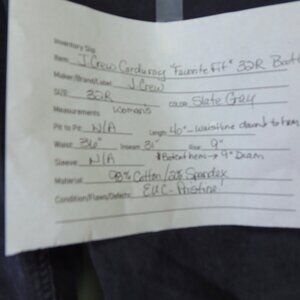 Inventory Slip
Item: J.Crew Corduroy "Favorite Fit" 32R Boot
Maker/Brand/Label: J Crew
Size: 32R Color Slate Gray
Measurements: Womans
Pit to Pit N/A Length 40" - Waistline down to hem
Waist: 36" Inseam: 31" Rise: 9"
Sleeve N/A Bootcut hem → 9" Diam.
Material: 98% Cotton/2% Spandex
Condition/Flaws/Defects: EUC - Pristine!